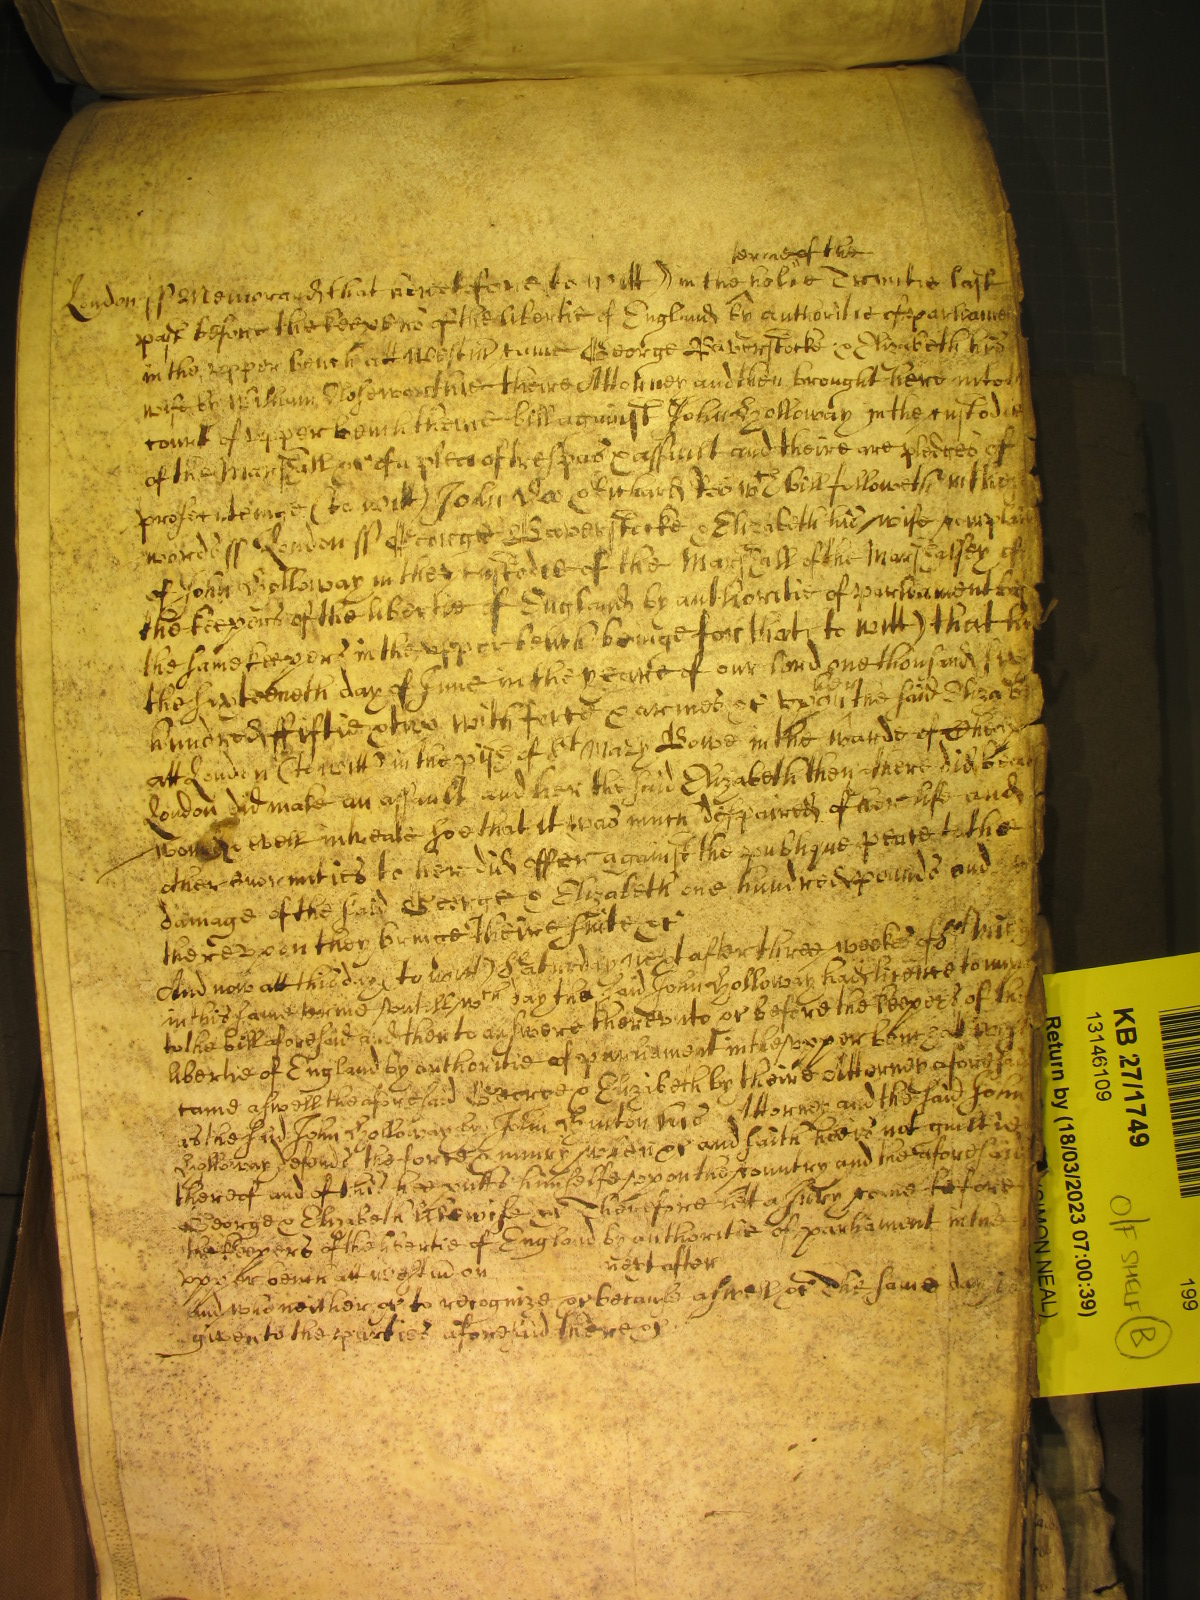 terme of the
London ss Memorand that heretofore (to witt) in the holie Trinitie last
past before the keepers of the libertie of England by authoritie of parliamen
in the upper bench att Westm came George Baverstocke & Elizabeth his
wife by William Noseworthie theire Attorney and then brought here into
court of upper bench theire bill against John Holloway in the custodie
of the Marshall &c of a plea of trespas & assault and theire are pledges of
prosecuteinge (to witt) John Doe & Richard Roe wch bill followeth in these
words ss London ss George Baverstocke & Elizabeth his wife complain
of John Holloway in the custodie of the Marshall of the Marshalsey of
the keepers of the libertie of England by authoritie of parliament
the same keepers in the upper bench beinge for that (to witt) that hee
the sixteeneth day of June in the yeare of our lord one thousand six
hundred fiftie & two with force & armes &c upon her the said Elizab
att London (to witt) in the pish of St Mary Bowe in the warde of Cheape
London did make an assault and her the said Elizabeth then & there did beate
wound & evill intreate soe that it was much despaired of her life and
other enormities to her did offer against the publique peace to the
damage of the said George & Elizabeth one hundred pounds and
thereupon they bringe theire suite &c
And now att this day (to witt) Saturday next after three weekes of St Mich
in this same terme untill wch day the said John Holloway had licence to imp
to the bill aforesaid and then to answere thereunto &c before the keepers of the
libertie of England by authoritie of parliament in the upper bench att West
came aswell the aforesaid George & Elizabeth by theire Attorney aforesaid
as the said John Holloway by John Burton his Attorney and the said John
Holloway defends the force & injury when &c and saith hee is not guiltie
thereof and of this hee putts himselfe upon the country and the aforesaid
George & Elizabeth likewise &c Therefore let a Jury come before
the keepers of the libertie of England by authoritie of parliament in the
upper bench att Westm on next after
and who neither &c to recognize &c because aswell &c The same day is
given to the parties aforesaid there &c
KB 27/1749
13146109
Return by (18/03/2023 07:00:39)
SIMON NEAL)
199
B